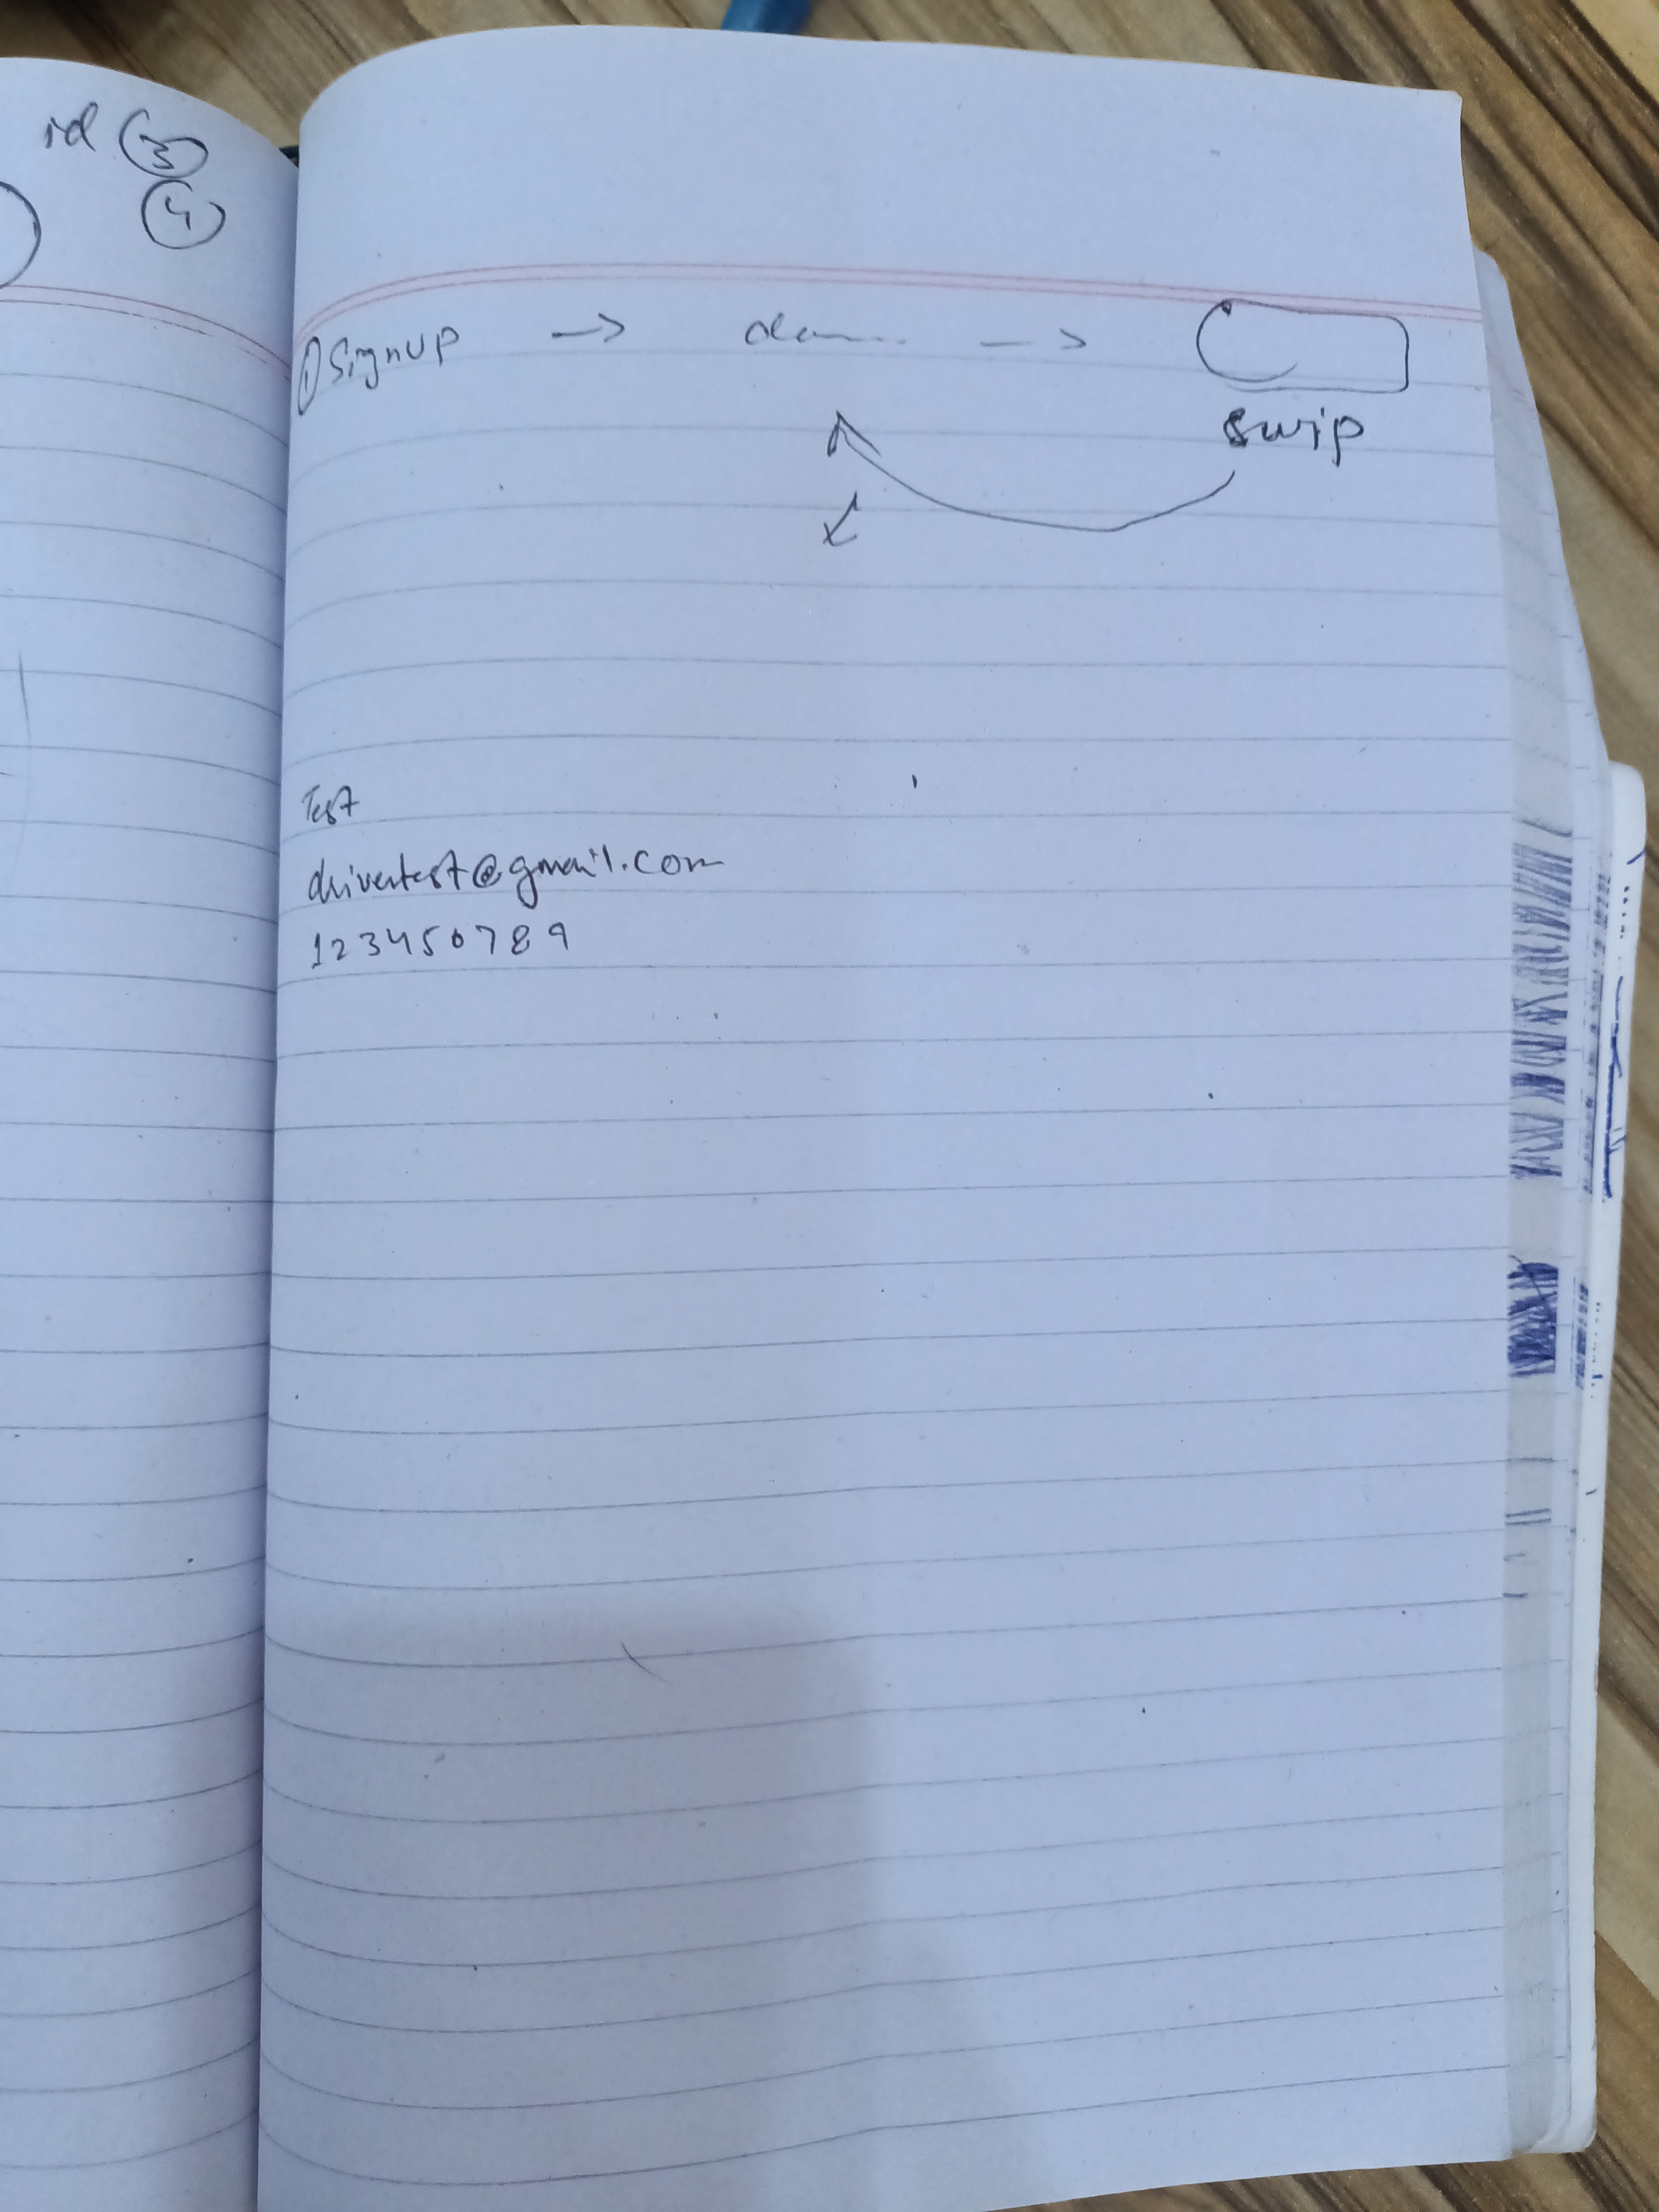 id 3
4
① Signup → → 
swip
Test
drivertest@gmail.com
123450789